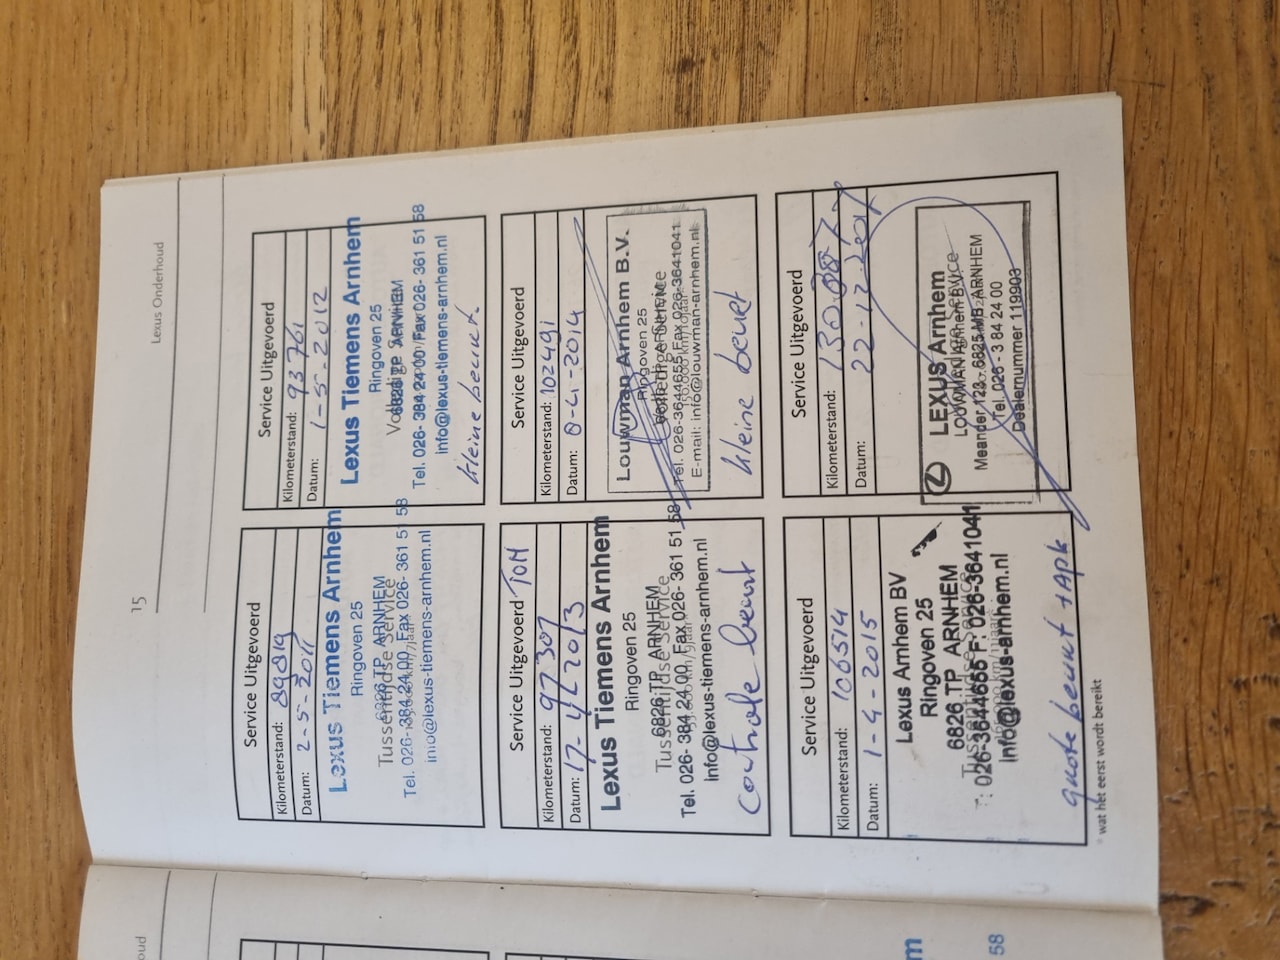 15
Lexus Onderhoud
Service Uitgevoerd
Kilometerstand: 89819
Datum: 2-5-2011
Lexus Tiemens Arnhem
Ringoven 25
6826 TP ARNHEM
Tussentijdse Service
Tel. 026- 384 24 00 Fax 026- 361 51 58
info@lexus-tiemens-arnhem.nl
Service Uitgevoerd
Kilometerstand: 93761
Datum: 1-5-2012
Lexus Tiemens Arnhem
Ringoven 25
6826 TP ARNHEM
Volledige Service
Tel. 026- 384 24 00 Fax 026- 361 51 58
info@lexus-tiemens-arnhem.nl
kleine beurt
Service Uitgevoerd TOM
Kilometerstand: 97307
Datum: 17-4-2013
Lexus Tiemens Arnhem
Ringoven 25
6826 TP ARNHEM
Tussentijdse Service
Tel. 026- 384 24 00 Fax 026- 361 51 58
info@lexus-tiemens-arnhem.nl
controle beurt
Service Uitgevoerd
Kilometerstand: 102491
Datum: 8-4-2014
Louwman Arnhem B.V.
Ringoven 25
Volledige Service
Tel. 026-3644655 Fax 026-3641041
E-mail: info@louwman-arnhem.nl
kleine beurt
Service Uitgevoerd
Kilometerstand: 106514
Datum: 1-4-2015
Lexus Arnhem BV
Ringoven 25
6826 TP ARNHEM
Tussentijdse Service
T: 026-3644655 F: 026-3641041
info@lexus-arnhem.nl
grote beurt + APK
Service Uitgevoerd
Kilometerstand:
Datum: 22-12-2017
LEXUS Arnhem
LOUWMAN Arnhem B.V.
Volledige Service
Meander 123, 6825 MB ARNHEM
Tel. 026 - 3 84 24 00
Dealernummer 119903
* wat het eerst wordt bereikt
oud
58